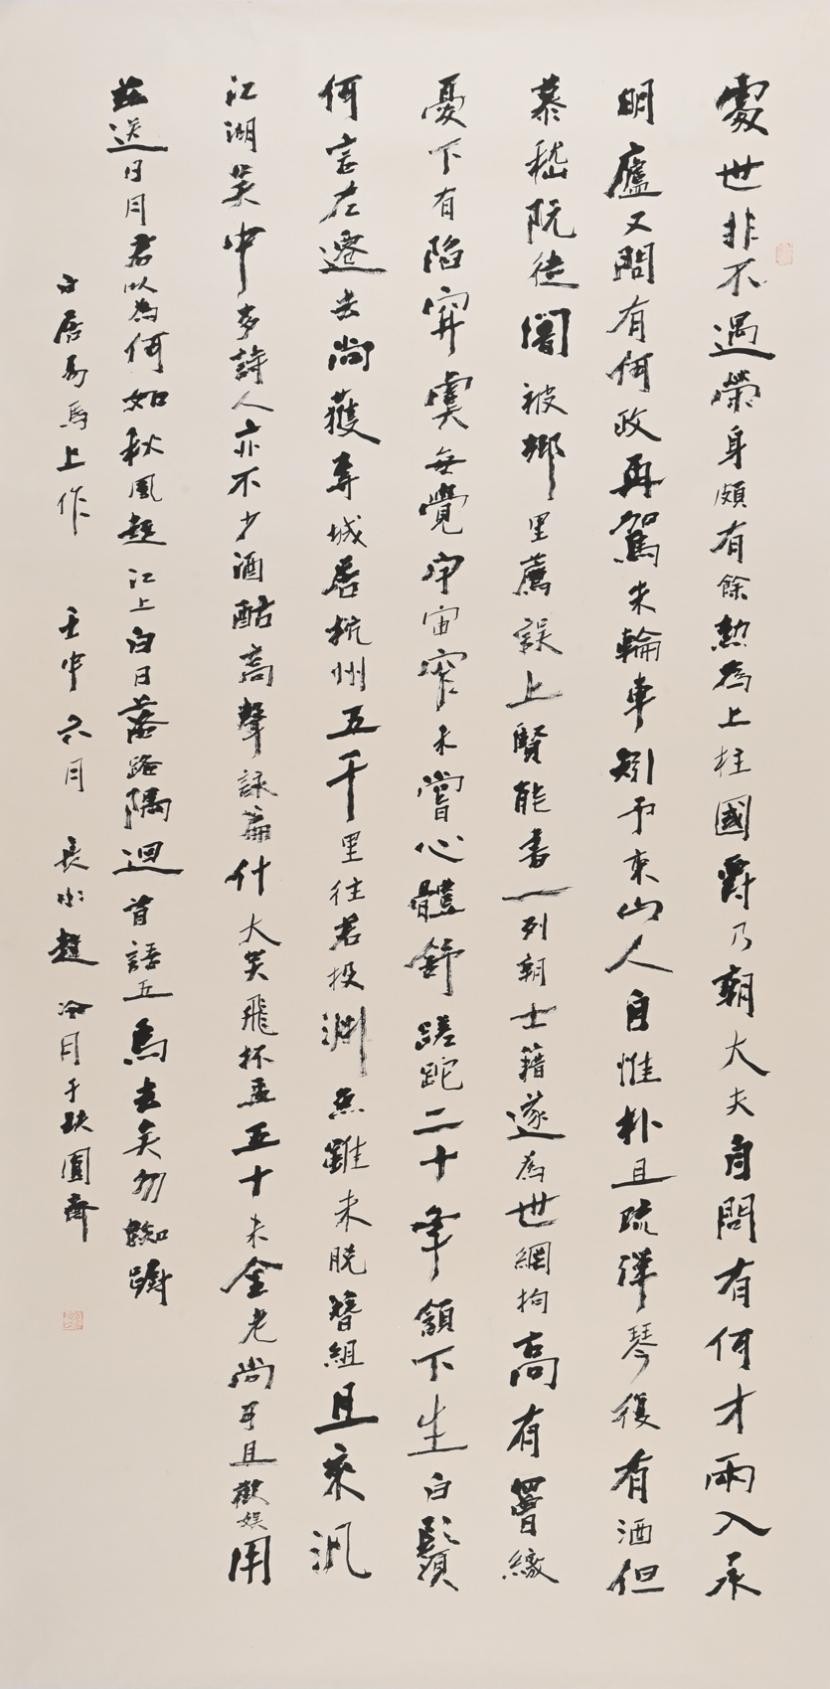 處世非不遇榮身頗有餘勲為上柱國爵乃朝大夫自問有何才兩入承
明廬又問有何政再駕朱輪車矧予東山人自惟朴且疏彈琴復有酒但
慕嵇阮徒闇被鄉里薦誤上賢能書一列朝士籍遂為世網拘高有罾繳
憂下有陷穽虞每覺宇宙窄未嘗心體舒蹉跎二十年頷下生白鬚
何言左遷去尚獲專城居杭州五千里往若投淵魚雖未脫簪組且來汎
江湖吴中多詩人亦不少酒酤高聲詠篇什大笑飛杯盂五十未全老尚可且歡娱用
茲送日月君以為何如秋風起江上白日落路隅迴首語五馬去矣勿踟躕
白居易馬上作 壬申六月 長水趙冷月于玦圓齋